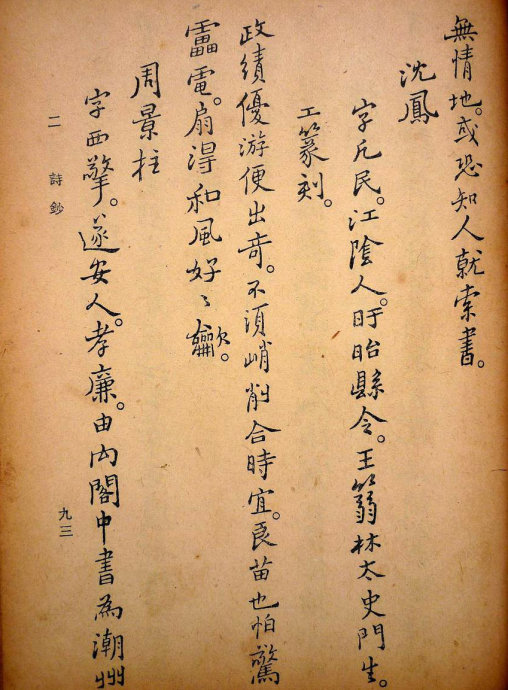 無情地。或恐知人就索書。
沈鳳
字凡民。江陰人。盱眙縣令。王篛林太史門生。
工篆刻。
政績優游便出奇。不須峭削合時宜。良苗也怕驚
靁電。扇得和風好〻龡。
周景柱
字西擎。遂安人。孝廉。由內閣中書為潮州
二 詩鈔
九三